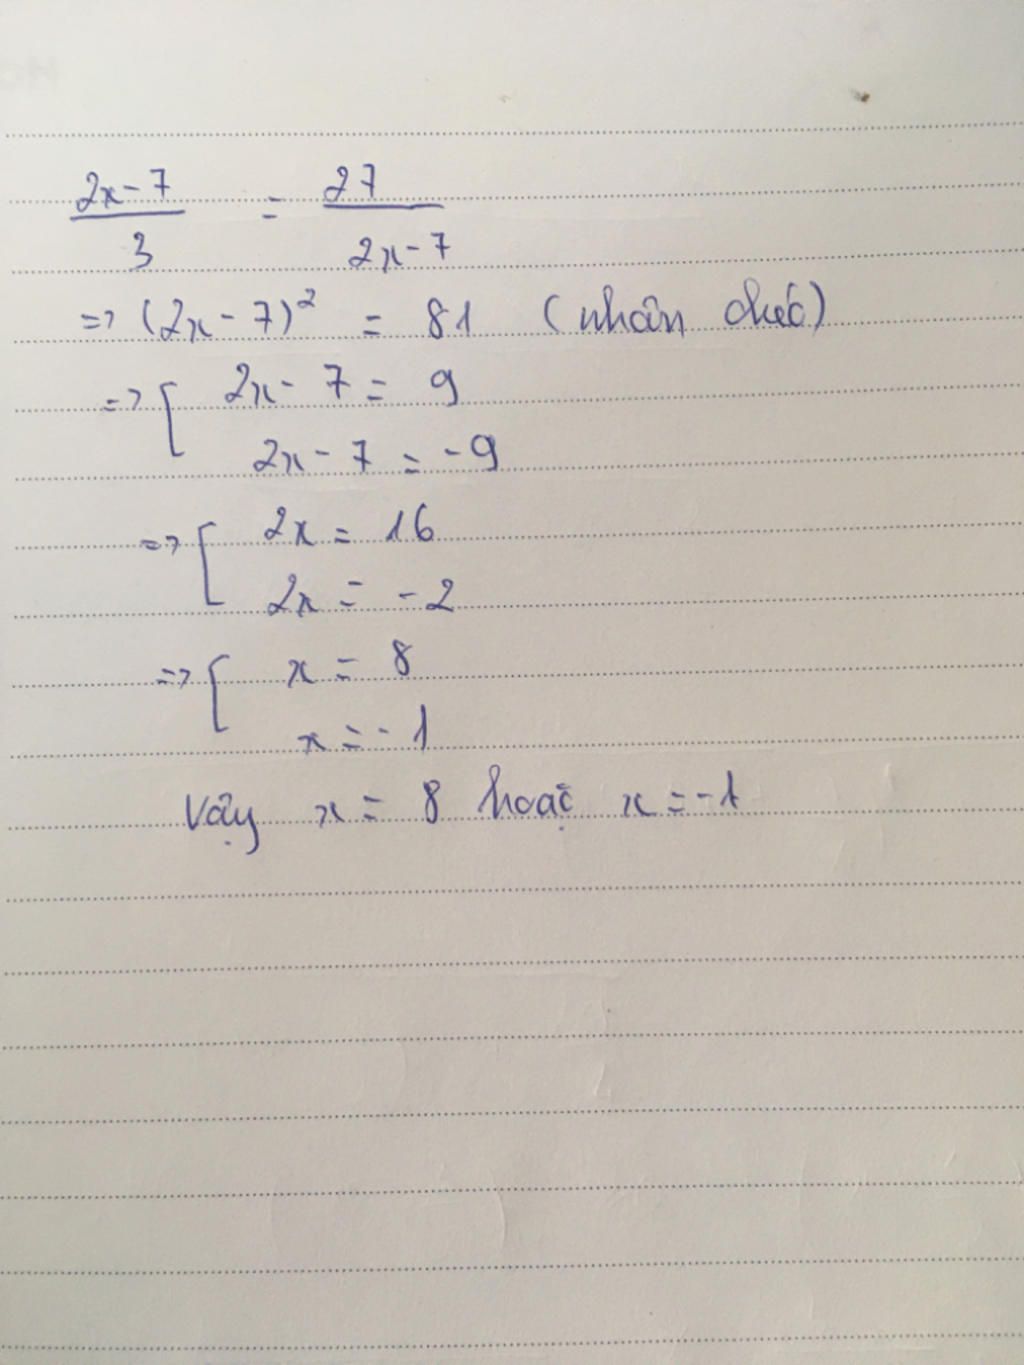 2x-7 = 27
3 2x-7
=> (2x-7)² = 81 (nhân chéo)
=> [ 2x-7 = 9
2x-7 = -9
=> [ 2x = 16
2x = -2
=> [ x = 8
x = -1
Vậy x = 8 hoặc x = -1